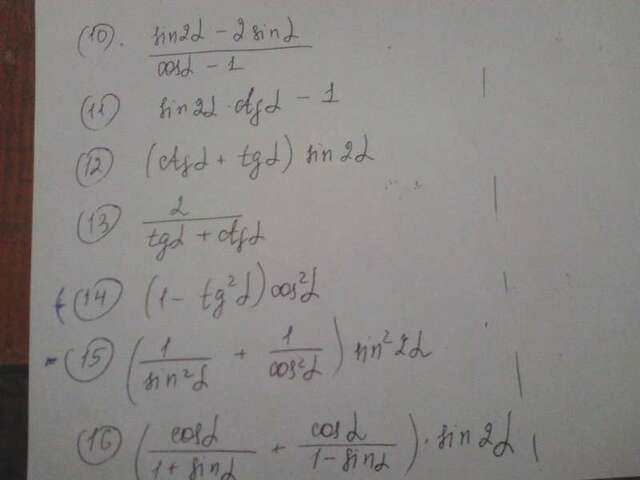 (10). (sin2α - 2sinα)/(cosα - 1)
(11) sin2α · ctgα - 1
(12) (ctgα + tgα) sin2α
(13) 2/(tgα + ctgα)
(14) (1 - tg²α) cos²α
(15) (1/sin²α + 1/cos²α) sin²2α
(16) (cosα/(1 + sinα) + cosα/(1 - sinα)) · sin2α